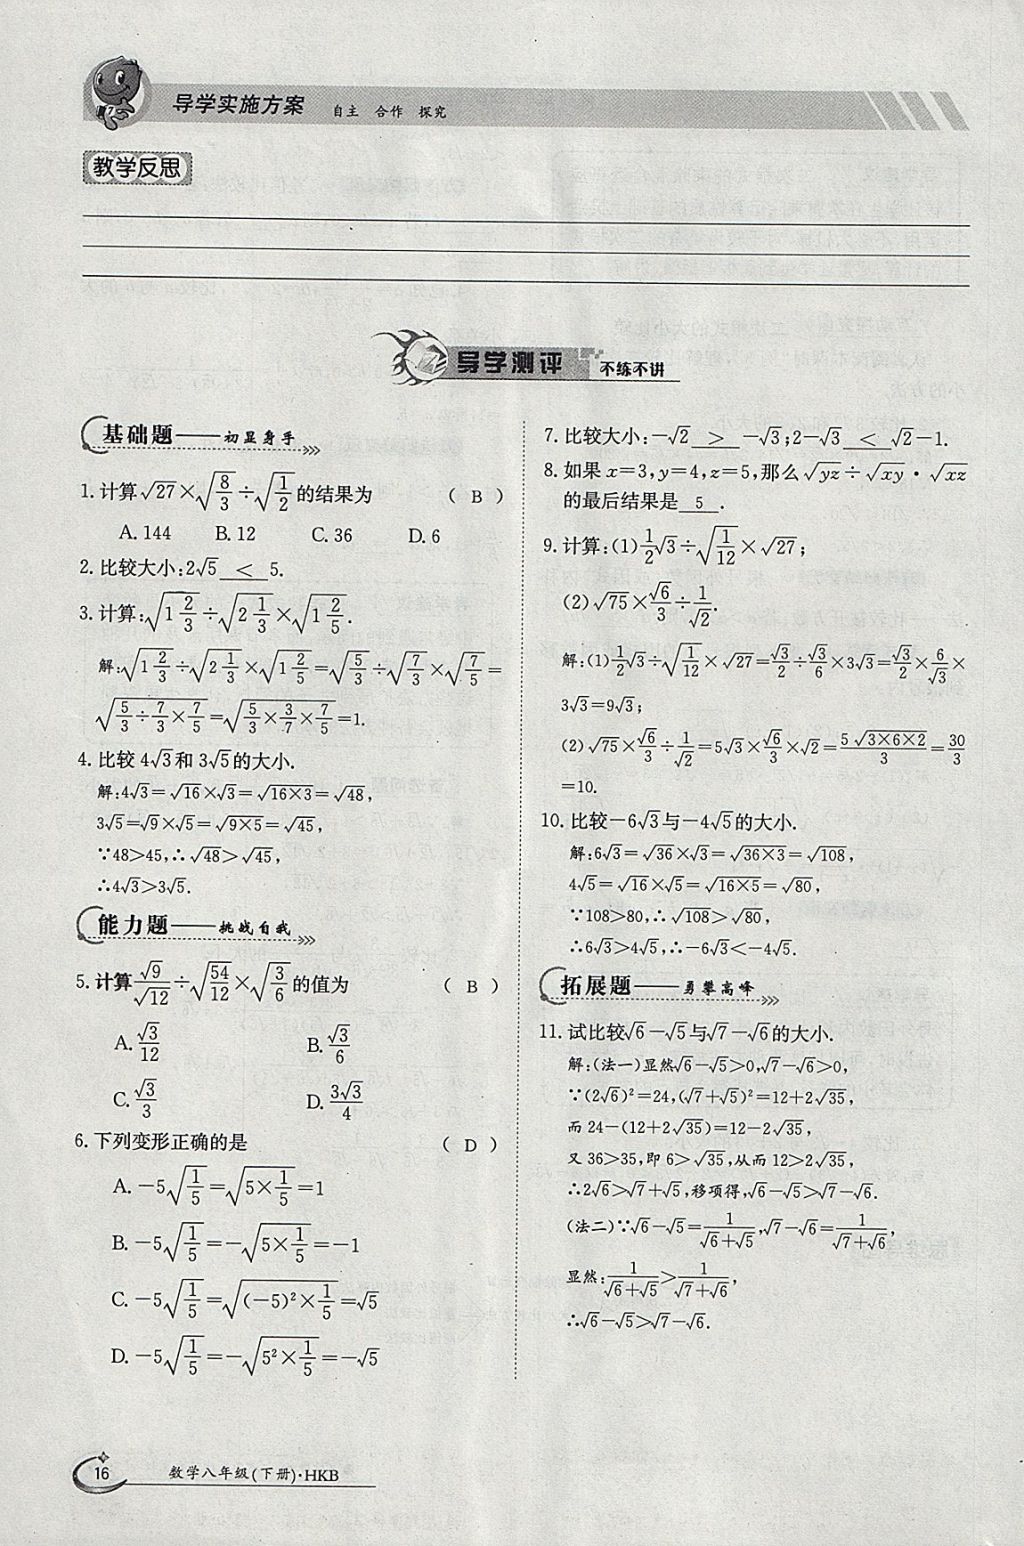 导学实施方案 自主 合作 探究
教学反思
导学测评 不练不讲
基础题——初显身手
1.计算√27×√(8/3)÷√(1/2)的结果为 ( B )
A.144 B.12 C.36 D.6
2.比较大小:2√5 < 5.
3.计算:√(1 2/3)÷√(2 1/3)×√(1 2/5).
解:√(1 2/3)÷√(2 1/3)×√(1 2/5)=√(5/3)÷√(7/3)×√(7/5)=
√(5/3÷7/3×7/5)=√(5/3×3/7×7/5)=1.
4.比较4√3和3√5的大小.
解:4√3=√16×√3=√(16×3)=√48,
3√5=√9×√5=√(9×5)=√45,
∵48>45,∴√48>√45,
∴4√3>3√5.
能力题——挑战自我
5.计算√9/√12÷√(54/12)×√(3/6)的值为 ( B )
A.√3/12 B.√3/6
C.√3/3 D.3√3/4
6.下列变形正确的是 ( D )
A.-5√(1/5)=√(5×1/5)=1
B.-5√(1/5)=-√(5×1/5)=-1
C.-5√(1/5)=√((-5)²×1/5)=√5
D.-5√(1/5)=-√(5²×1/5)=-√5
7.比较大小:-√2 > -√3;2-√3 < √2-1.
8.如果x=3,y=4,z=5,那么√(yz)÷√(xy)·√(xz)
的最后结果是 5 .
9.计算:(1)1/2√3÷√(1/12)×√27;
(2)√75×√6/3÷1/√2.
解:(1)1/2√3÷√(1/12)×√27=√3/2÷√3/6×3√3=√3/2×6/√3×
3√3=9√3;
(2)√75×√6/3÷1/√2=5√3×√6/3×√2=5√(3×6×2)/3=30/3
=10.
10.比较-6√3与-4√5的大小.
解:6√3=√36×√3=√(36×3)=√108,
4√5=√16×√5=√(16×5)=√80,
∵108>80,∴√108>√80,
∴6√3>4√5,∴-6√3<-4√5.
拓展题——勇攀高峰
11.试比较√6-√5与√7-√6的大小.
解:(法一)显然√6-√5>0,√7-√6>0,
∵(2√6)²=24,(√7+√5)²=12+2√35,
而24-(12+2√35)=12-2√35,
又36>35,即6>√35,从而12>2√35,
∴2√6>√7+√5,移项得,√6-√5>√7-√6.
(法二)∵√6-√5=1/(√6+√5),√7-√6=1/(√7+√6),
显然:1/(√6+√5)>1/(√7+√6),
∴√6-√5>√7-√6.
16 数学八年级(下册)·HKB